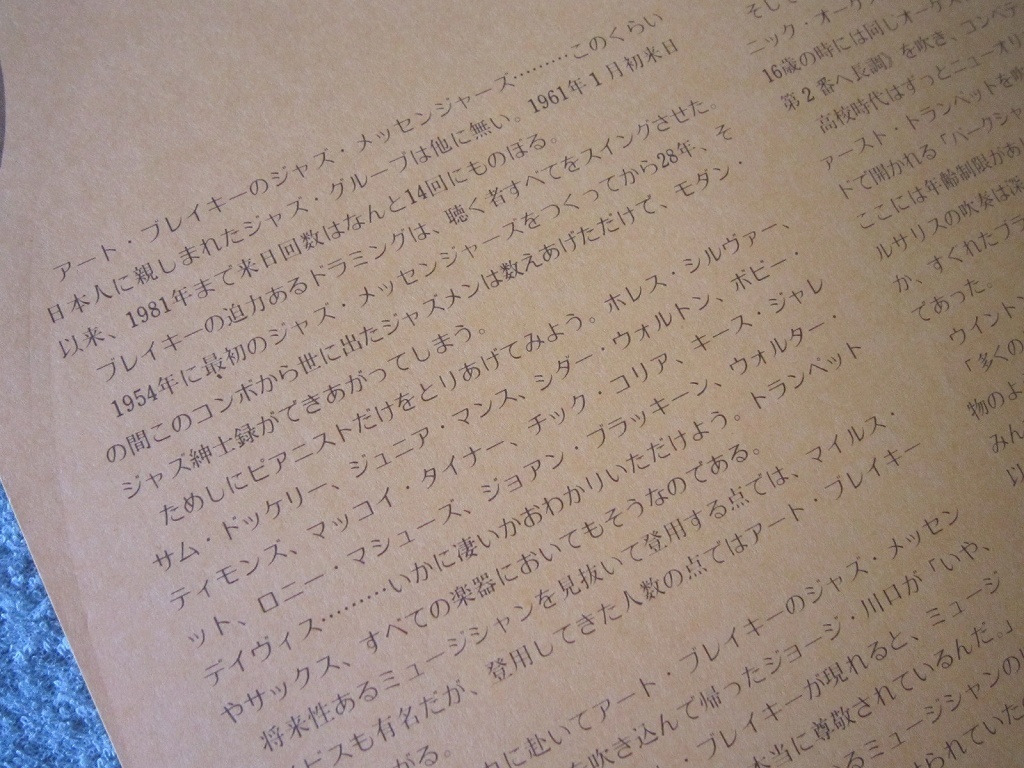 アート・ブレイキーのジャズ・メッセンジャーズ………このくらい
日本人に親しまれたジャズ・グループは他に無い。1961年1月初来日
以来、1981年まで来日回数はなんと14回にものぼる。
ブレイキーの迫力あるドラミングは、聴く者すべてをスイングさせた。
1954年に最初のジャズ・メッセンジャーズをつくってから28年、そ
の間このコンボから世に出たジャズメンは数えあげただけて、モダン・
ジャズ紳士録ができあがってしまう。
ためしにピアニストだけをとりあげてみよう。ホレス・シルヴァー、
サム・ドッケリー、ジュニア・マンス、シダー・ウォルトン、ボビー・
ティモンズ、マッコイ・タイナー、チック・コリア、キース・ジャレ
ット、ロニー・マシューズ、ジョアン・ブラッキーン、ウォルター・
デイヴィス………いかに凄いかおわかりいただけよう。トランペット
やサックス、すべての楽器においてもそうなのである。
将来性あるミュージシャンを見抜いて登用する点では、マイルス・
ビスも有名だが、登用してきた人数の点ではアート・ブレイキー
がる。
に赴いてアート・ブレイキーのジャズ・メッセン
を吹き込んて帰ったジョージ・川口が「いや、
・ブレイキーが現れると、ミュージ
本当に尊敬されているんだ。」
るミュージシャンの
られていた
そして
ニック・オーケ
16歳の時には同しオーケス
第2番ヘ長調》を吹き、コンペテ
高校時代はずっとニューオリ
ァースト・トランペットを吹
トで開かれる「バークシャ
ここには年齢制限があ
ルサリスの吹奏は深
か、すぐれたプラ
であった。
ウイントン
「多くの
物のよ
みん
以